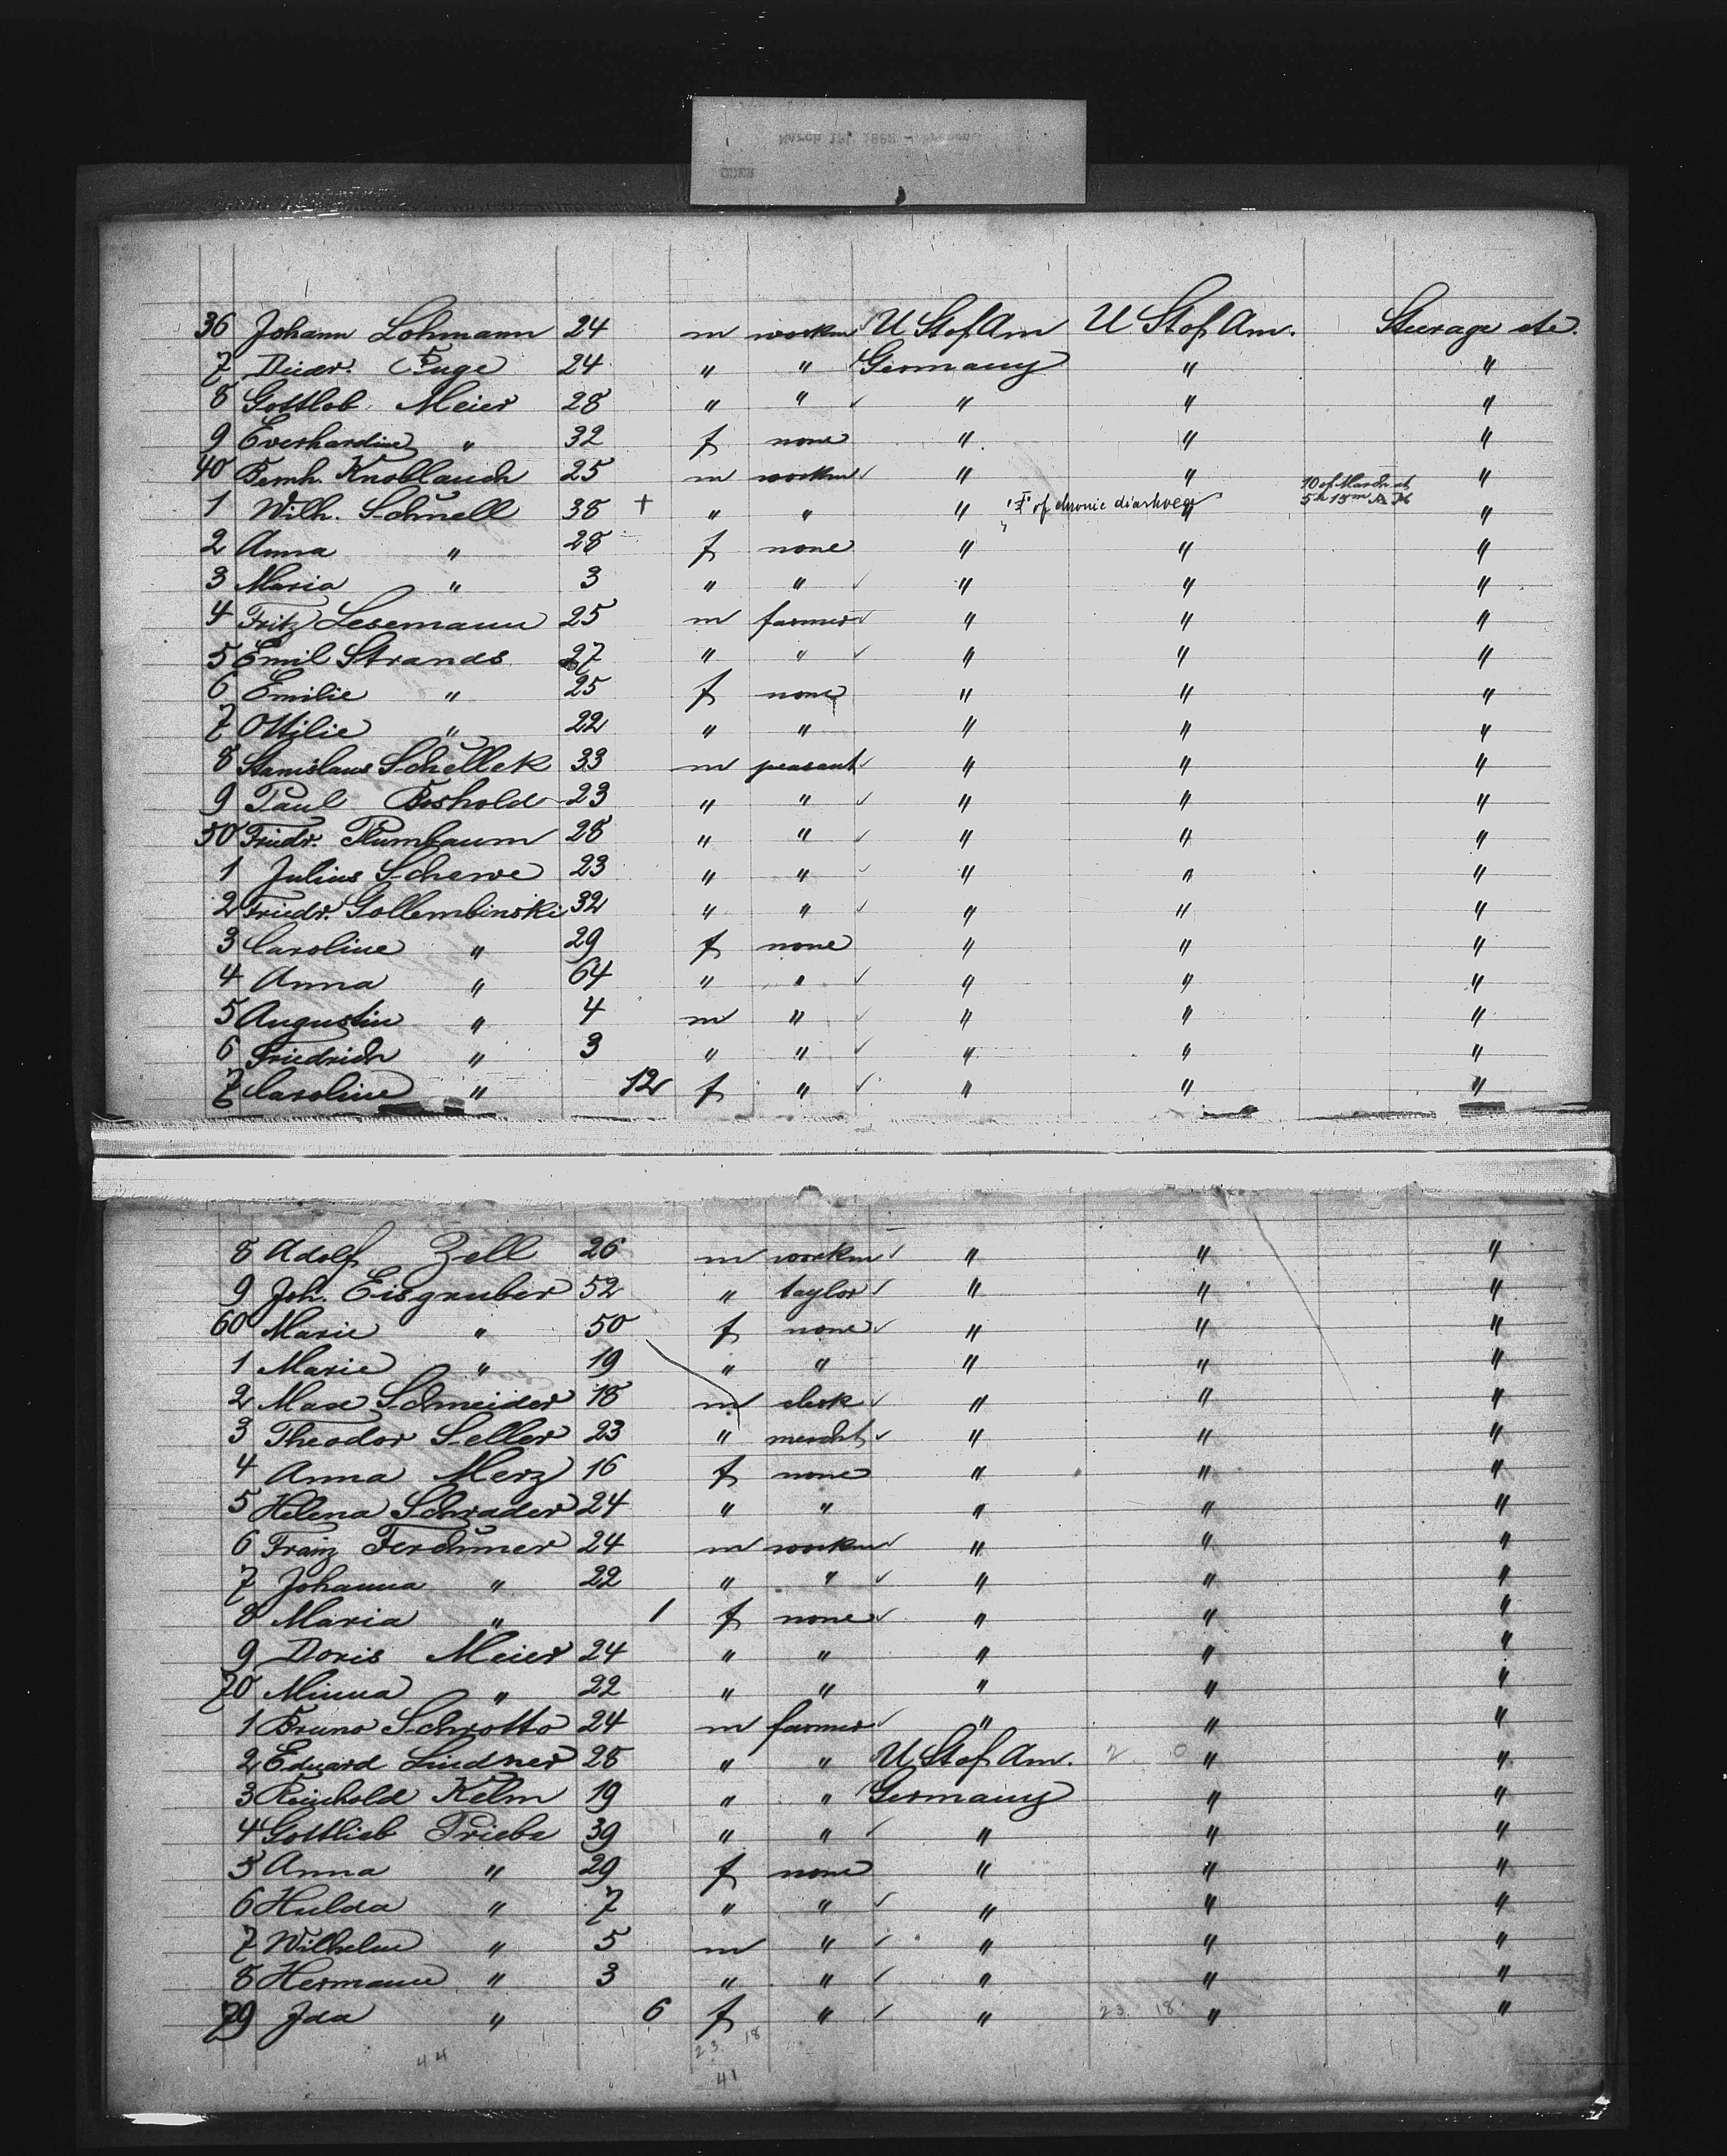 March 17, 1882
36 Johann Lohmann 24 m workm U St of Am U St of Am. Steerage etc.
7 Diedr. Fuge 24 " " Germany " "
8 Gottlob Meier 28 " " " " "
9 Everhardine " 32 f none " " "
40 Bernh. Knoblauch 25 m workm " " "
10 of March at
1 Wilh. Schnell 38 + " " " " † of chronic diarhoea " 5h 15m A M "
2 Anna " 28 f none " " "
3 Maria " 3 " " " " "
4 Fritz Lesemann 25 m farmer " " "
5 Emil Strands 27 " " " " "
6 Emilie " 25 f none " " "
7 Ottilie " 22 " " " " "
8 Stanislaus Schellek 33 m peasant " " "
9 Paul Berhold 23 " " " " "
50 Friedr. Plumbaum 28 " " " " "
1 Julius Scherve 23 " " " " "
2 Friedr. Gollembinski 32 " " " " "
3 Caroline " 29 f none " " "
4 Anna " 64 " " " " "
5 Augustin " 4 m " " " "
6 Friedrich " 3 " " " " "
7 Caroline " 12 f " " " "
8 Adolf Zell 26 m workm " " "
9 Joh. Eisgruber 52 " taylor " " "
60 Marie " 50 f none " " "
1 Marie " 19 " " " " "
2 Max Schneider 18 m clerk " " "
3 Theodor Seller 23 " mercht " " "
4 Anna Merz 16 f none " " "
5 Helena Schrader 24 " " " " "
6 Franz Ferchmer 24 m workm " " "
7 Johanna " 22 " " " " "
8 Maria " 1 f none " " "
9 Doris Meier 24 " " " " "
70 Minna " 22 " " " " "
1 Bruno Schrotto 24 m farmer " " "
2 Eduard Lindner 28 " " U St of Am. 2. 0 " "
3 Reinhold Kelm 19 " " Germany " "
4 Gottlieb Priebe 39 " " " " "
5 Anna " 29 f none " " "
6 Hulda " 7 " " " " "
7 Wilhelm " 5 m " " " "
8 Hermann " 3 " " " " "
79 Ida " 6 f " " 23. 18 " "
44 23. 18
41